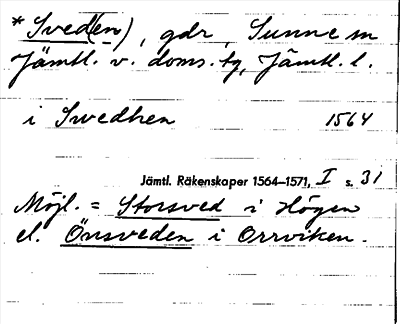 * Sved(en), gdr, Sunne sn
Jämtl. v. doms. tg, Jämtl. l.
i Swedhen 1564
Jämtl. Räkenskaper 1564–1571, I s. 31
Möjl. = Storsved i Högen
el. Önsveden i Orrviken.